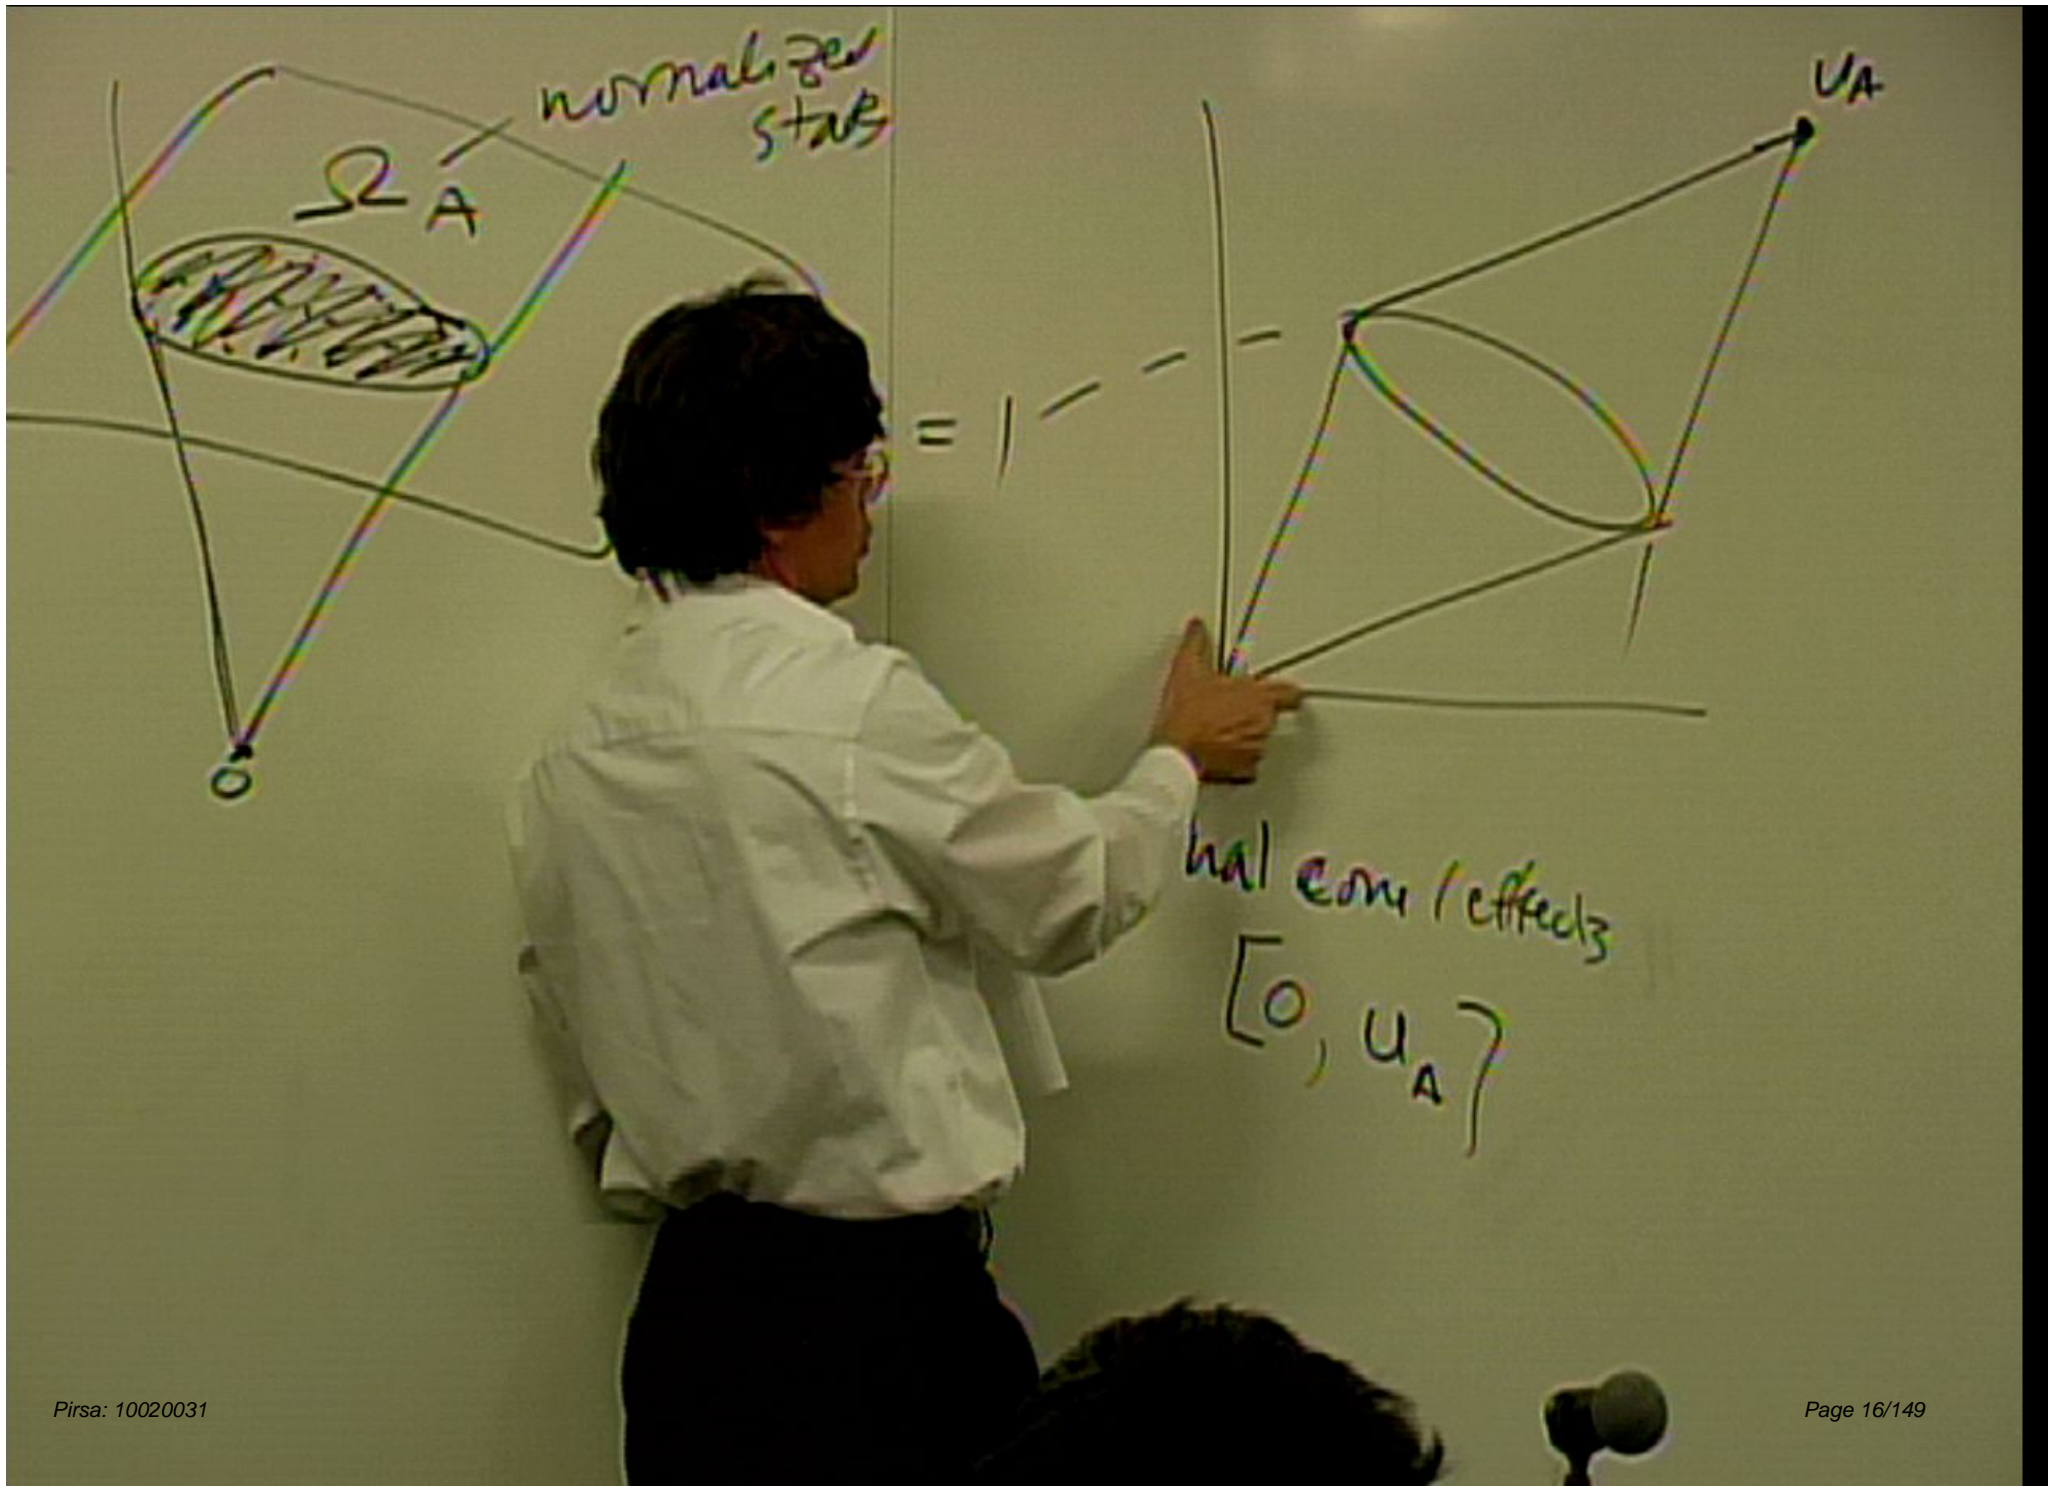 normalized
states
Ω A
= 1
O
UA
effects
[0, uA]
Pirsa: 10020031
Page 16/149